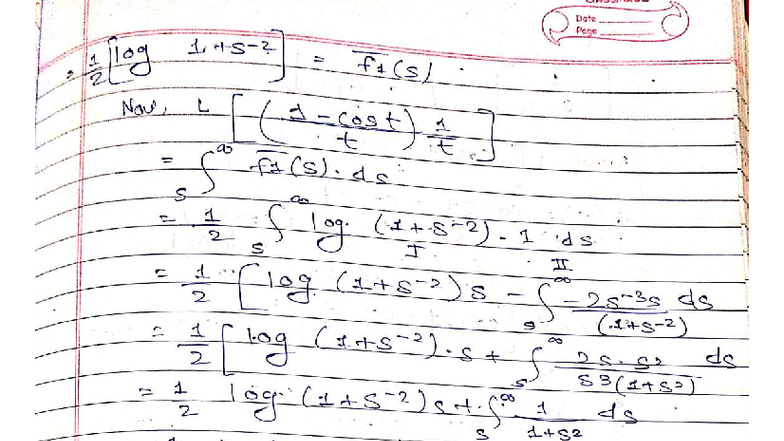 Date
Page
= 1/2 [log 1+s-2] = f̅1(s)
Now, L [(1-cost/t) 1/t]
= ∫s^∞ f̅1(s).ds
= 1/2 ∫s^∞ log (1+s^-2)-1 ds
I II
= 1/2 [log (1+s^-2)s - ∫s^∞ -2s^-3s/(1+s-2) ds
= 1/2 [log (1+s^-2).s + ∫s^∞ 2s.s2/s3(1+s2) ds
= 1/2 log (1+s^-2)s + ∫s^∞ 1/1+s2 ds